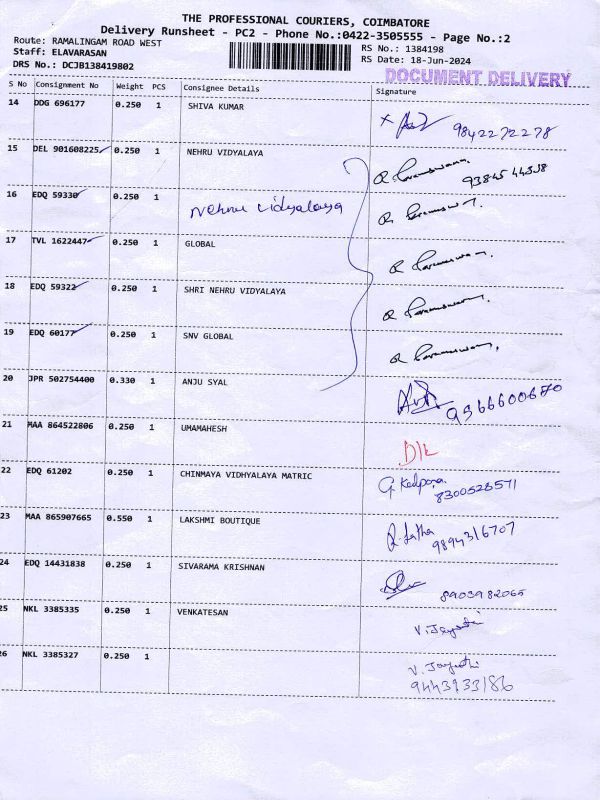 THE PROFESSIONAL COURIERS, COIMBATORE
Delivery Runsheet - PC2 - Phone No.:0422-3505555 - Page No.:2
Route: RAMALINGAM ROAD WEST RS No.: 1384198
Staff: ELAVARASAN RS Date: 18-Jun-2024
DRS No.: DCJB138419802 DOCUMENT DELIVERY
S No Consignment No Weight PCS Consignee Details Signature
14 DDG 696177 0.250 1 SHIVA KUMAR
9842272278
15 DEL 901608225 0.250 1 NEHRU VIDYALAYA
16 EDQ 59330 0.250 1 Nehru Vidyalaya
17 TVL 1622447 0.250 1 GLOBAL
18 EDQ 59322 0.250 1 SHRI NEHRU VIDYALAYA
19 EDQ 60177 0.250 1 SNV GLOBAL
20 JPR 502754400 0.330 1 ANJU SYAL
21 MAA 864522806 0.250 1 UMAMAHESH
D/L
22 EDQ 61202 0.250 1 CHINMAYA VIDHYALAYA MATRIC
G. Kalpana
8300528571
23 MAA 865907665 0.550 1 LAKSHMI BOUTIQUE
R. Latha
9894316707
24 EDQ 14431838 0.250 1 SIVARAMA KRISHNAN
8903982065
25 NKL 3385335 0.250 1 VENKATESAN
V. Jayanthi
26 NKL 3385327 0.250 1
V. Jayanthi
9443933186